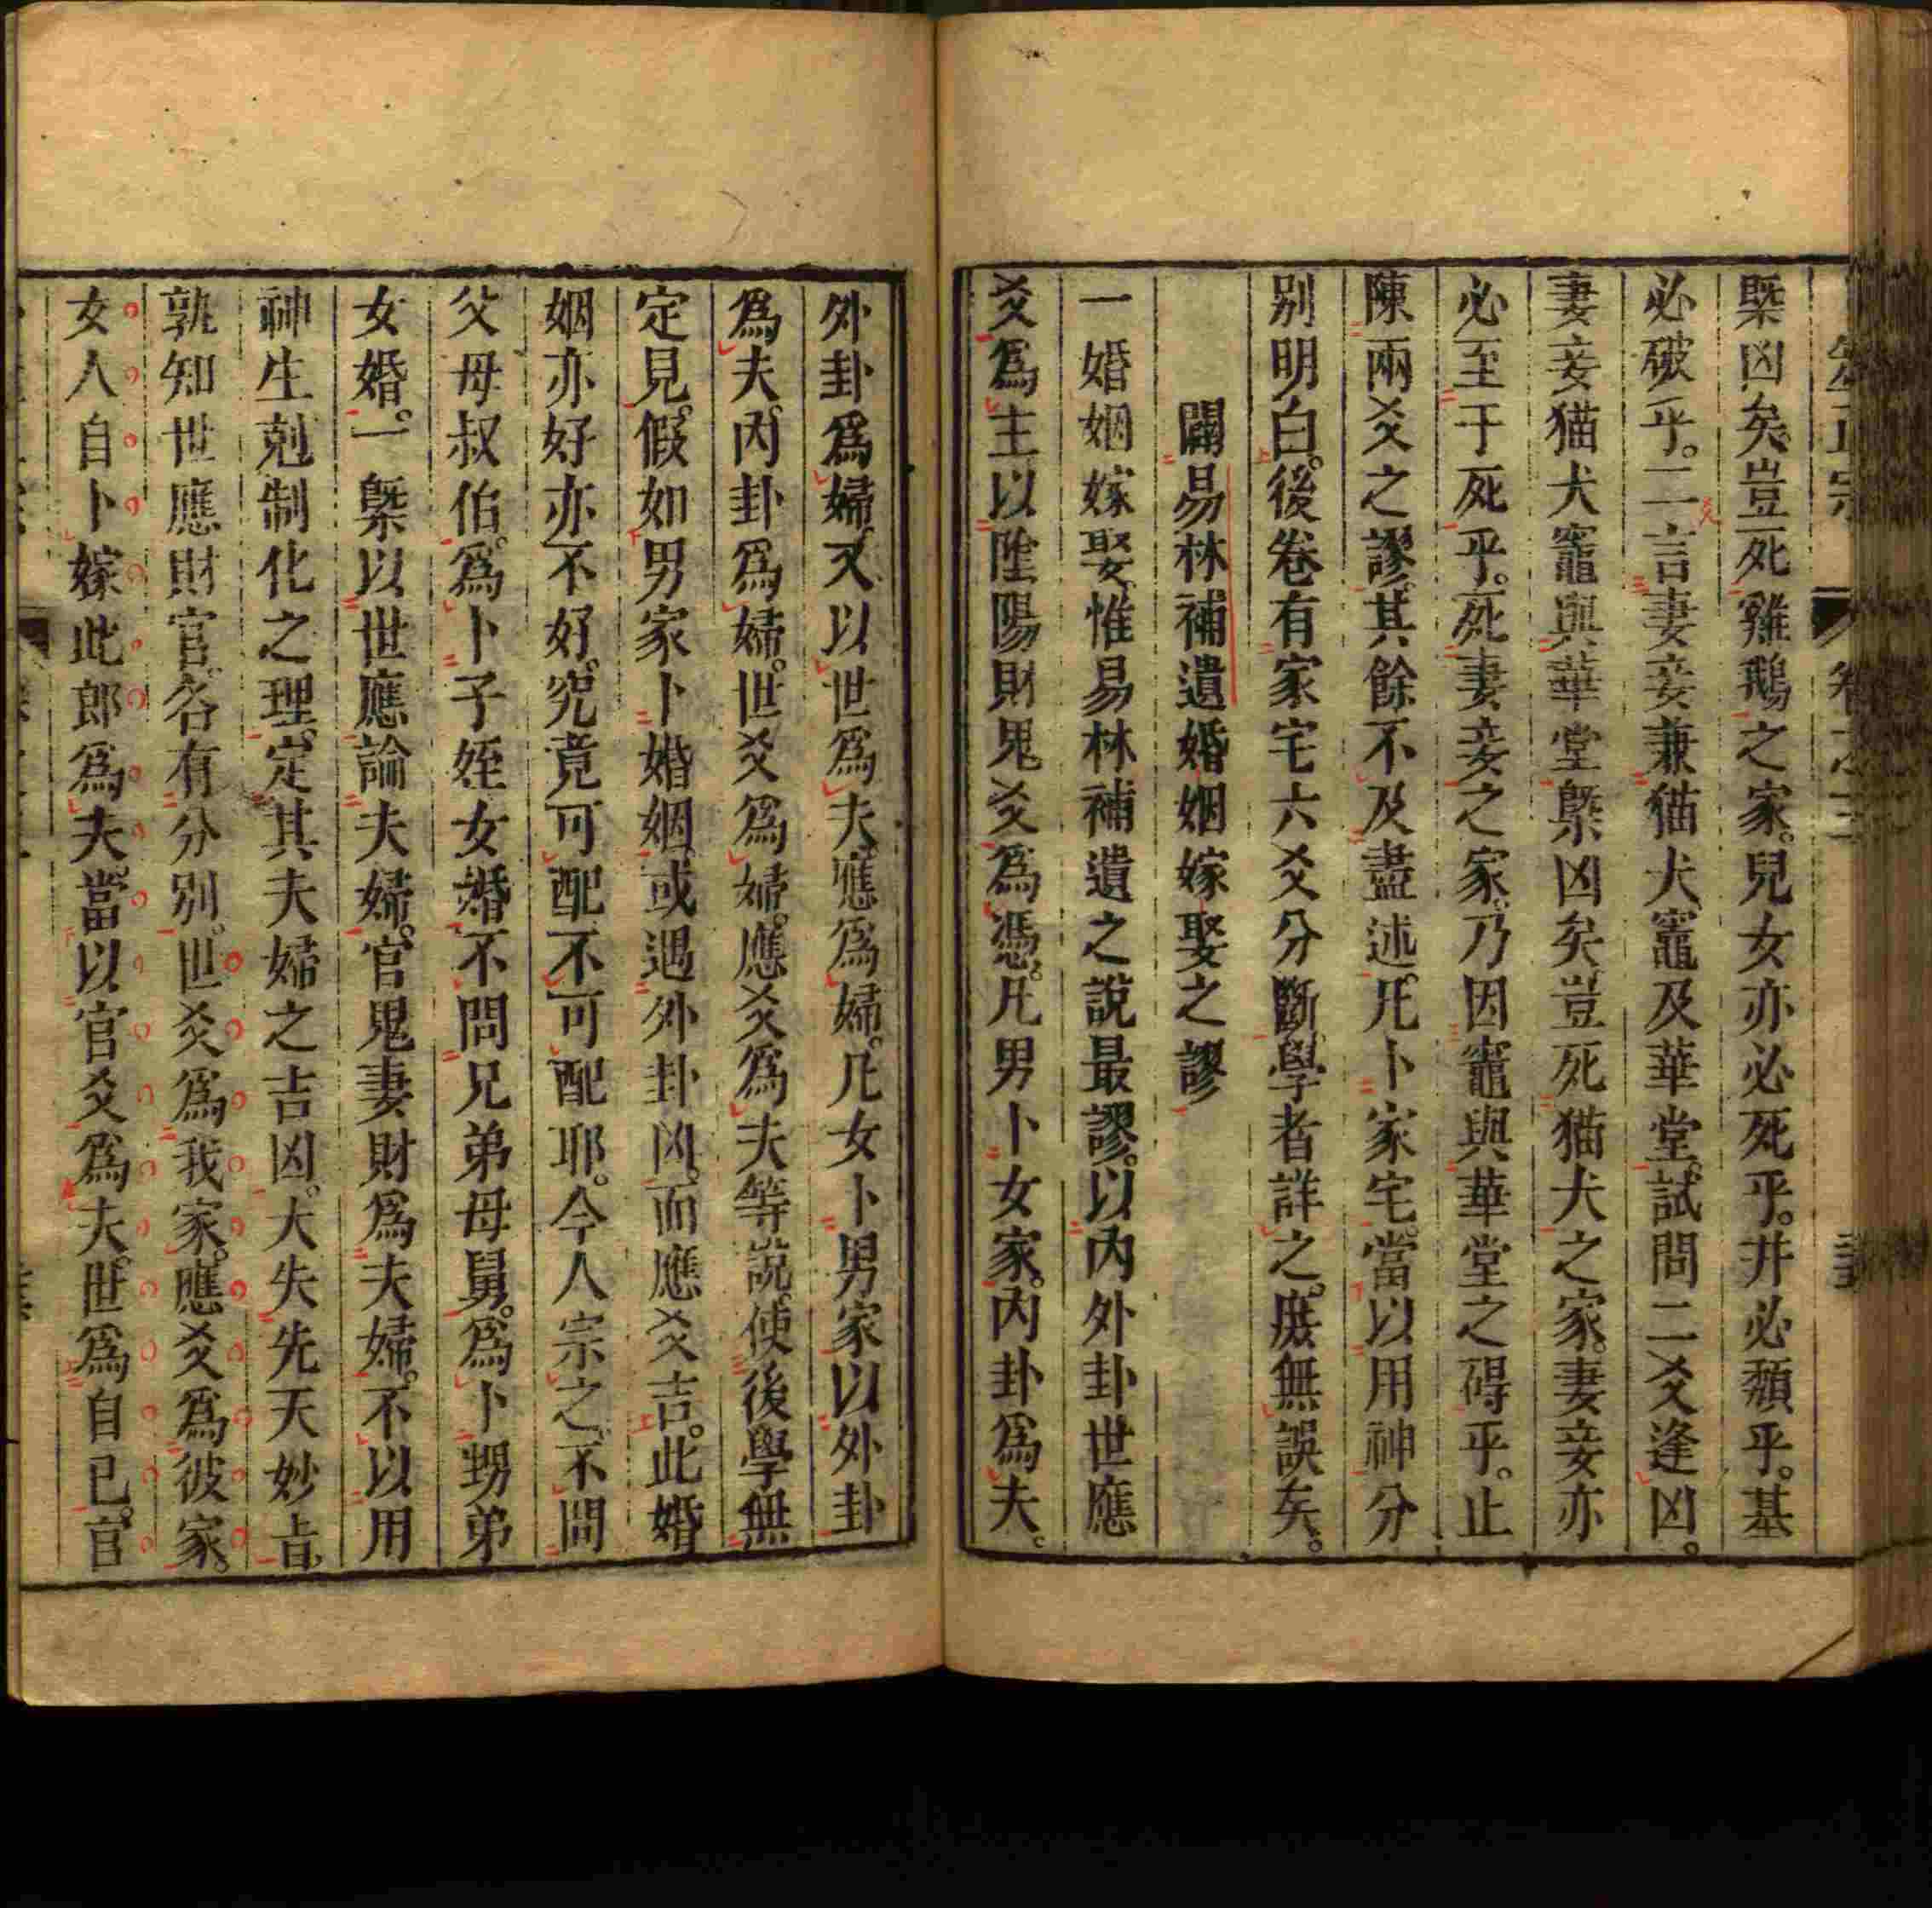 卜筮正宗 卷之三
槩凶矣豈死雞鵝之家。兒女亦必死乎。井必頹乎。基
必破乎。二言妻妾兼猫犬竈及華堂。試問二爻逢凶。
妻妾猫犬竈與華堂槩凶矣豈死猫犬之家。妻妾亦
必至于死乎。死妻妾之家。乃因竈與華堂之碍乎。止
陳兩爻之謬。其餘不及盡述。凡卜家宅。當以用神分
别明白。後卷有家宅六爻分斷。學者詳之。庶無誤矣。
闢易林補遺婚姻嫁娶之謬
一婚姻嫁娶。惟易林補遺之說最謬。以內外卦世應
爻爲主以陰陽財鬼爻爲憑。凡男卜女家。內卦爲夫。
外卦爲婦。又以世爲夫應爲婦。凡女卜男家以外卦
爲夫。內卦爲婦。世爻爲婦。應爻爲夫等説。使後學無
定見。假如男家卜婚姻。或遇外卦凶。而應爻吉。此婚
姻亦好亦不好。究竟可配不可配耶。今人宗之。不問
父母叔伯。爲卜子姪女婚不問兄弟母舅。爲卜甥弟
女婚。一槩以世應論夫婦。官鬼妻財爲夫婦。不以用
神生剋制化之理。定其夫婦之吉凶。大失先天妙旨。
孰知世應財官。各有分別。世爻爲我家。應爻爲彼家。
女人自卜嫁此郎爲夫。當以官爻爲夫。世爲自己。官